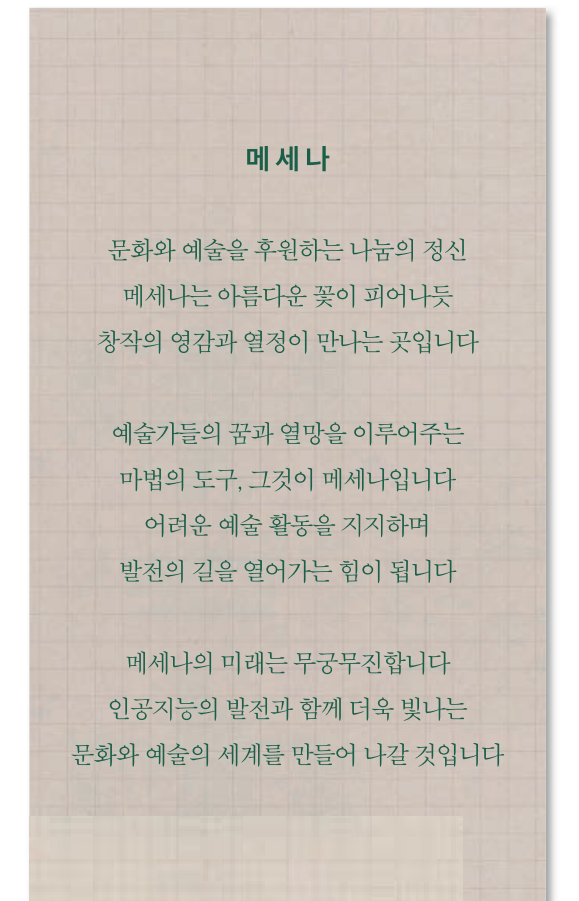 메세나
문화와 예술을 후원하는 나눔의 정신
메세나는 아름다운 꽃이 피어나듯
창작의 영감과 열정이 만나는 곳입니다
예술가들의 꿈과 열망을 이루어주는
마법의 도구, 그것이 메세나입니다
어려운 예술 활동을 지지하며
발전의 길을 열어가는 힘이 됩니다
메세나의 미래는 무궁무진합니다
인공지능의 발전과 함께 더욱 빛나는
문화와 예술의 세계를 만들어 나갈 것입니다